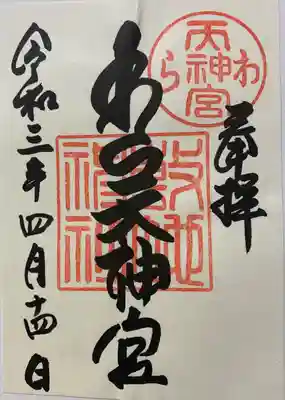 奉拝
わら天神宮
天神宮
わら
敷地
令和三年四月十四日